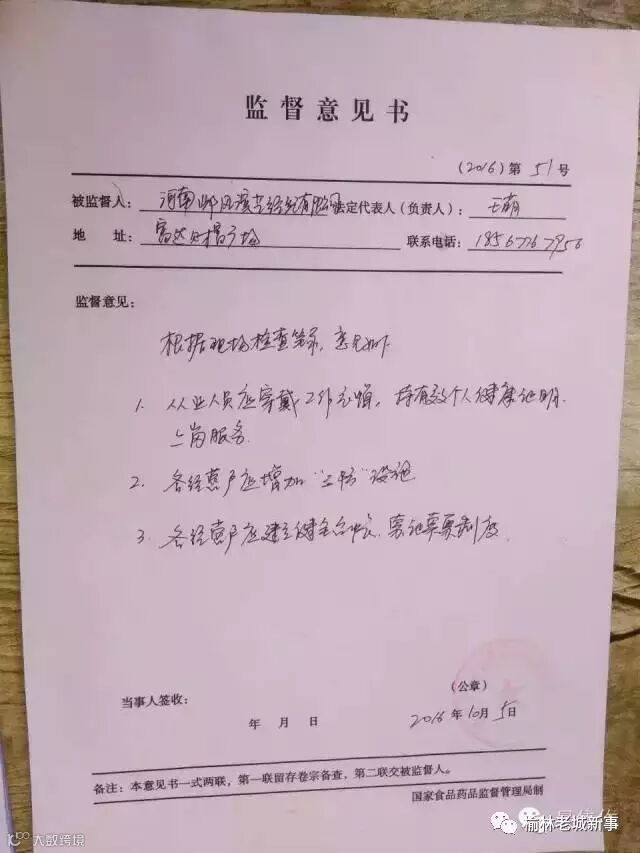 监督意见书
(2016)第 51 号
被监督人: 河南 演艺经纪有限公司 法定代表人(负责人): 王萌
地 址: 富达购物广场 联系电话: 18567767956
监督意见:
根据现场检查笔录, 意见如下
1. 从业人员应穿戴工作衣帽, 持有效个人健康证明
上岗服务.
2. 各经营户应增加“三防”设施
3. 各经营户应建立健全台帐、索证索票制度.
当事人签收: (公章)
年 月 日 2016年10月5日
备注:本意见书一式两联,第一联留存卷宗备查,第二联交被监督人。
国家食品药品监督管理局制
大数跨境
榆林老城新事